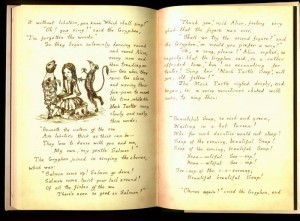 it without lobsters, you know. Which shall sing?"
"Oh! you sing!" said the Gryphon,
"I've forgotten the words."
So they began solemnly dancing round
and round Alice,
every now and
then treading on
her toes when they
came too close,
and waving their
fore-paws to mark
the time, while the
Mock Turtle sang
slowly and sadly,
these words:
"Beneath the waters of the sea
Are lobsters thick as thick can be—
They love to dance with you and me,
My own, my gentle Salmon!"
The Gryphon joined in singing the chorus,
which was:
"Salmon come up! Salmon go down!
Salmon come twist your tail around!
Of all the fishes of the sea
There's none so good as Salmon!"
"Thank you," said Alice, feeling very
glad that the figure was over.
"Shall we try the second figure?" said
the Gryphon, "or would you prefer a song?"
"Oh, a song, please!" Alice replied, so
eagerly, that the Gryphon said, in a rather
offended tone, "hm! no accounting for
tastes! Sing her 'Mock Turtle Soup', will
you, old fellow!"
The Mock Turtle sighed deeply, and
began, in a voice sometimes choked with
sobs, to sing this:
"Beautiful Soup, so rich and green,
Waiting in a hot tureen!
Who for such dainties would not stoop?
Soup of the evening, beautiful Soup!
Soup of the evening, beautiful Soup!
Beau—ootiful Soo—oop!
Beau—ootiful Soo—oop!
Soo—oop of the e—e—evening,
Beautiful beautiful Soup!
"Chorus again!" cried the Gryphon, and